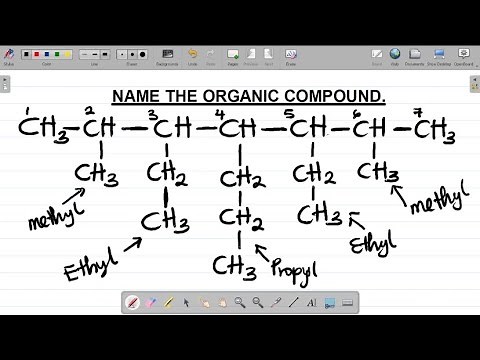 NAME THE ORGANIC COMPOUND.
1 2 3 4 5 6 7
CH3-CH-CH-CH-CH-CH-CH3
CH3 CH2 CH2 CH2 CH3
methyl CH3 CH2 CH3 methyl
Ethyl CH3 Propyl Ethyl